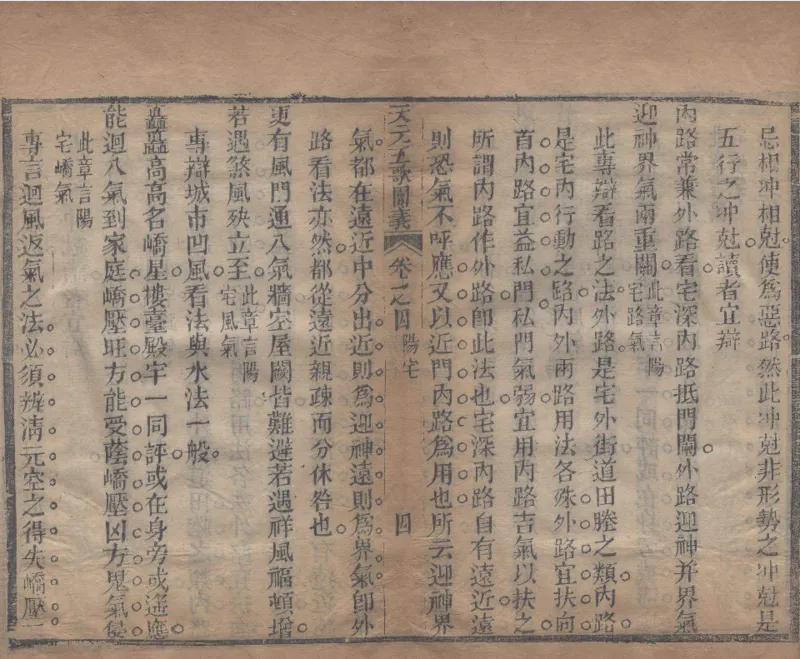 忌相冲相尅使爲惡路然此冲尅非形勢之冲尅是
五行之冲尅讀者宜辯
內路常兼外路看宅深內路抵門闌外路迎神并界氣
迎神界氣兩重關此章言陽宅路氣
此專辯看路之法外路是宅外街道田塍之類內路
是宅內行動之路內外兩路用法各殊外路宜扶向
首內路宜益私門私門氣弱宜用內路吉氣以扶之
所謂內路作外路卽此法也宅深內路自有遠近遠
則恐氣不呼應又以近門內路爲用也所云迎神界
天元五歌闡義 卷之四 陽宅 四
氣都在遠近中分出近則爲迎神遠則爲界氣卽外
路看法亦然都從遠近親疎而分休咎也
更有風門通八氣牆空屋闕皆難避若遇祥風福頓增
若遇煞風殃立至此章言陽宅風氣
專辯城市凹風看法與水法一般
矗矗高高名嶠星樓臺殿宇一同評或在身旁或遙應
能迴八氣到家庭嶠壓旺方能受蔭嶠壓凶方鬼氣侵
此章言陽宅嶠氣
專言迴風返氣之法必須辨淸元空之得失嶠壓